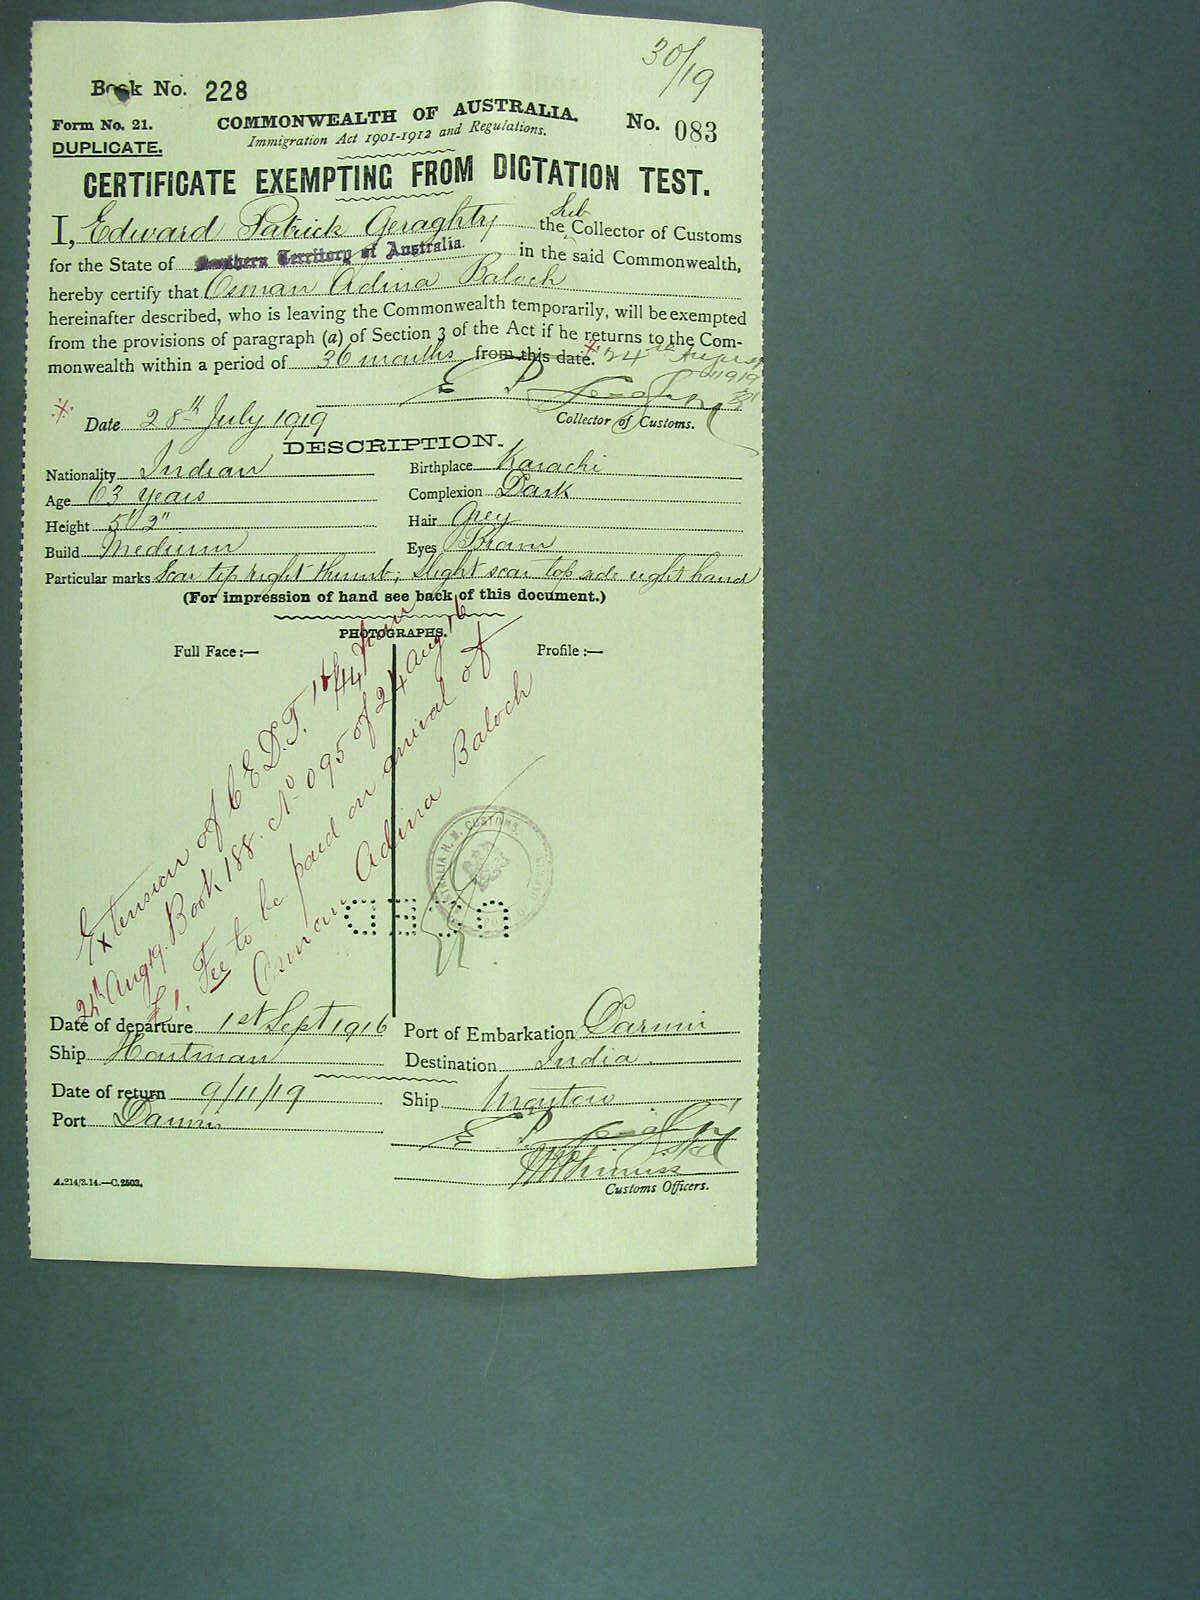 30/19
Book No. 228
Form No. 21.
DUPLICATE.
COMMONWEALTH OF AUSTRALIA.
Immigration Act 1901-1912 and Regulations.
No. 083
CERTIFICATE EXEMPTING FROM DICTATION TEST.
I, Edward Patrick Geraghty the Sub Collector of Customs
for the State of Northern Territory of Australia. in the said Commonwealth,
hereby certify that Osman Adina Baloch
hereinafter described, who is leaving the Commonwealth temporarily, will be exempted
from the provisions of paragraph (a) of Section 3 of the Act if he returns to the Com-
monwealth within a period of 36 months from this date. 24th August
1919
Date 28th July 1919
Collector of Customs.
DESCRIPTION.
Nationality Indian Birthplace Karachi
Age 63 years Complexion Dark
Height 5' 2" Hair Grey
Build Medium Eyes Brown
Particular marks Scar top right thumb; slight scar top side right hand
(For impression of hand see back of this document.)
PHOTOGRAPHS.
Full Face:— Profile:—
Extension of C.E.D.T. from
24th Aug 19. Book 188. No 095 of 24 Aug 16
£1. Fee to be paid on arrival of
Osman Adina Baloch
H. M. CUSTOMS.
Date of departure 1st Sept 1916 Port of Embarkation Darwin
Ship Houtman Destination India
Date of return 9/11/19 Ship Mataram
Port Darwin
Customs Officers.
A.214/3.14.—C.2503.